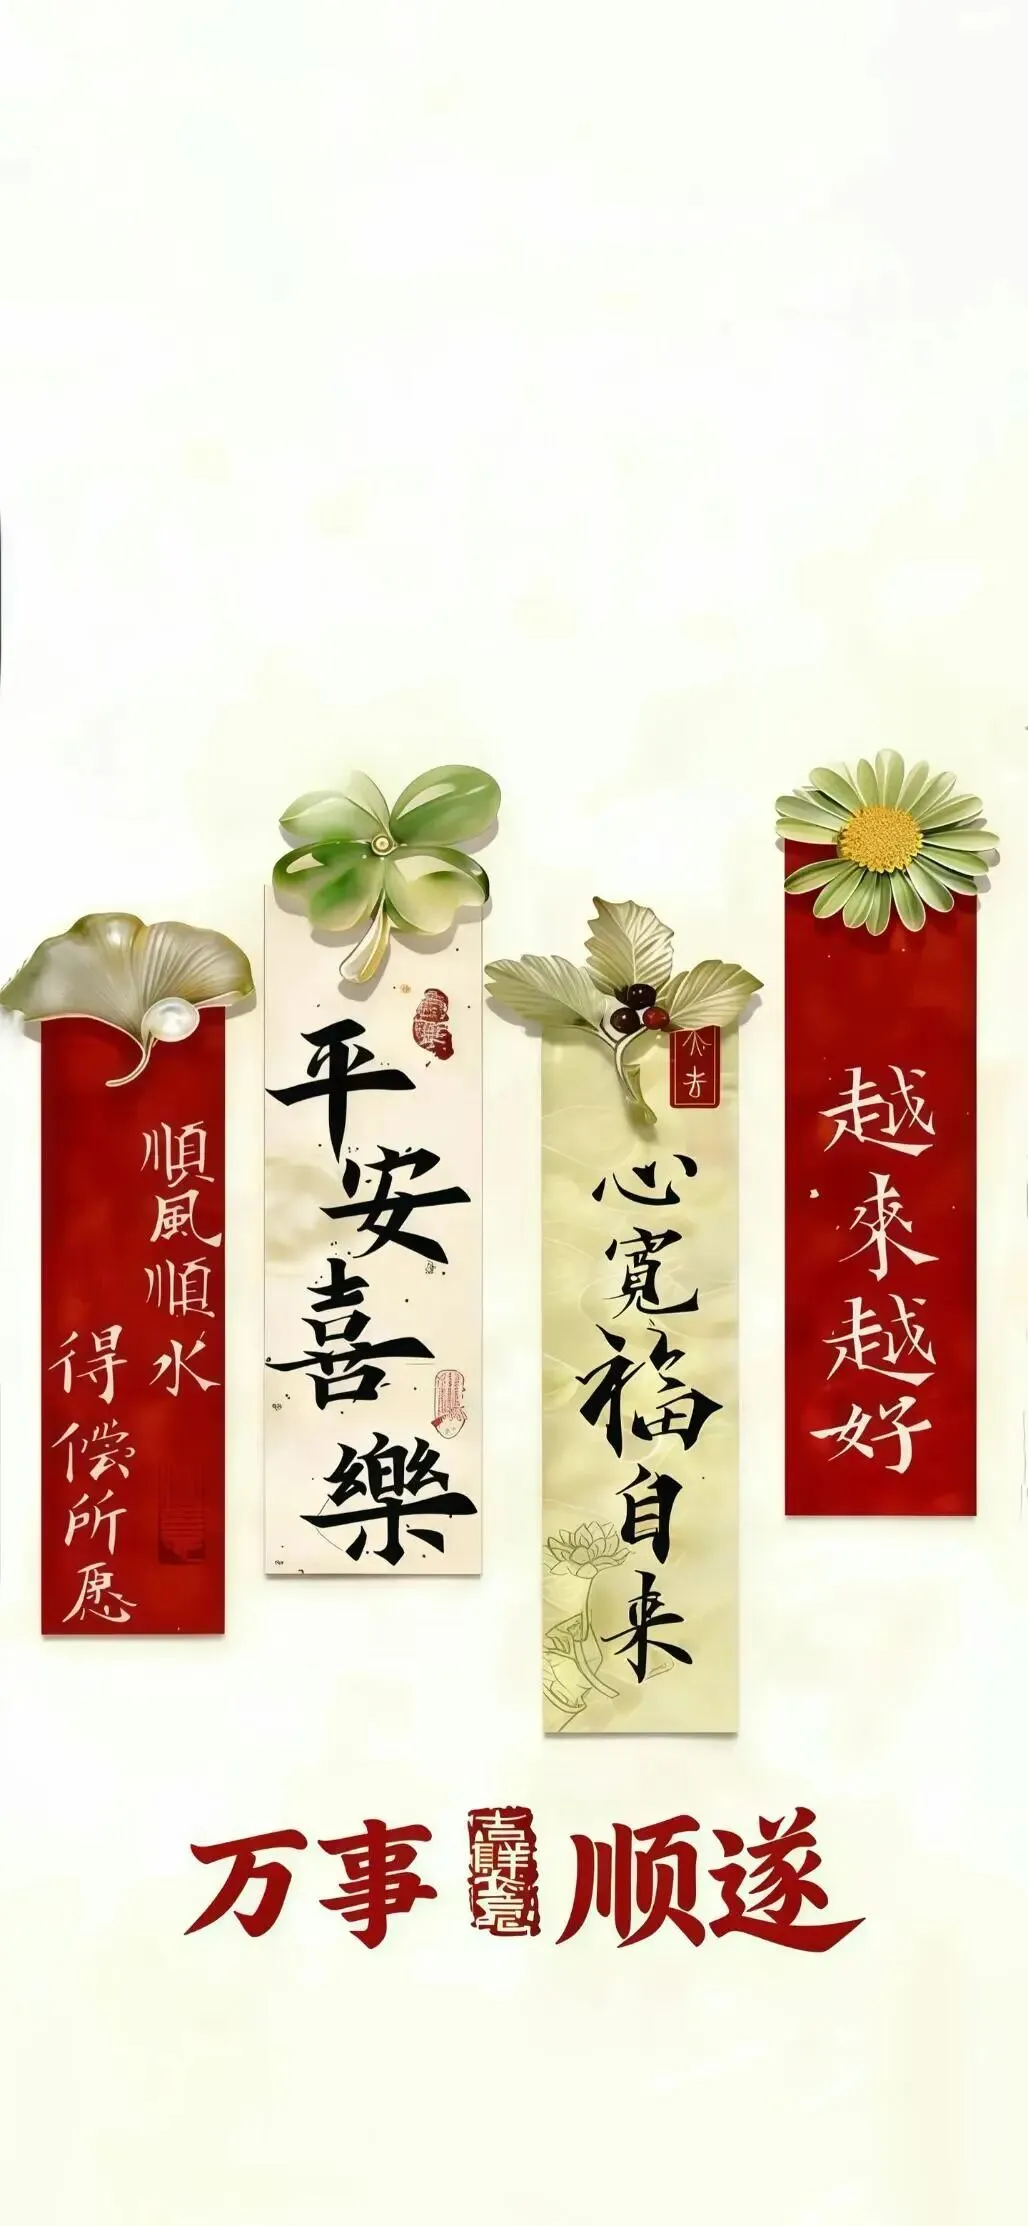 順風順水
得偿所愿
平安喜樂
心寬福自来
越來越好
万事
吉祥
顺遂